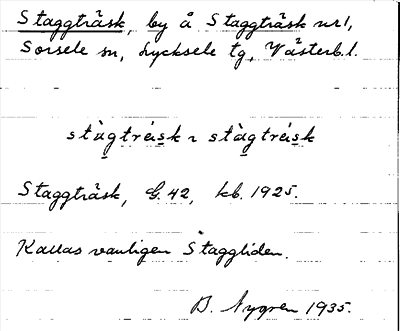 Staggträsk, by å Staggträsk nr 1,
Sorsele sn, Lycksele tg, Västerb. l.
stàgtréisk ~ stàgtréisk
Staggträsk, G. 42, kb. 1925.
Kallas vanligen Staggliden.
B. Nygren 1935.